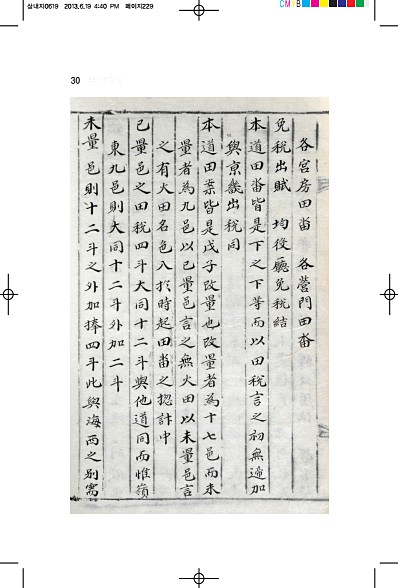 삼내지0619 2013.6.19 4:40 PM 페이지229
CM B
30
各宮房田畓 各營門田畓
免稅出賦 均役廳免稅結
本道田畓皆是下之下等而以田稅言之初無遞加
與京畿出稅同
本道田案皆是戊子改量也改量者為十七邑而未
量者為九邑以已量邑言之無火田以未量邑言
之有火田名色入於時起田畓之摠計中
已量邑之田稅四斗大同十二斗與他道同而惟嶺
東九邑則大同十二斗外加二斗
未量邑則十二斗之外加捧四斗此與海西之別需